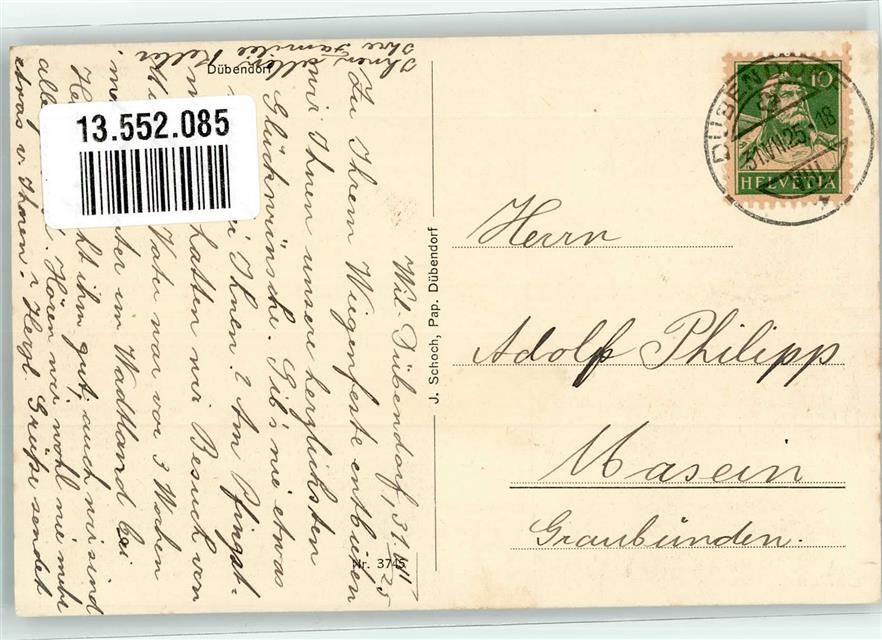 Dübendorf
13.552.085
Wil-Dübendorf, 31. VII. 25
Zu Ihrem Wiegenfeste entbieten
wir Ihnen unsere herzlichsten
Glückwünsche. Gib's nie etwas
Ihnen? Am Pfingst-
hatten wir Besuch von
Vater war vor 3 Wochen
im Wadtland bei
ihm gut, auch wir sind
Hören wir wohl nie mehr
etwas v. Ihnen. Herzl. Grüsse sendet
Ihnen allen
Ihre Familie Keller
Nr. 3745
J. Schoch, Pap. Dübendorf
10
HELVETIA
DÜBENDORF
31.VII.25. 18
Herrn
Adolf Philipp
Masein
Graubünden.